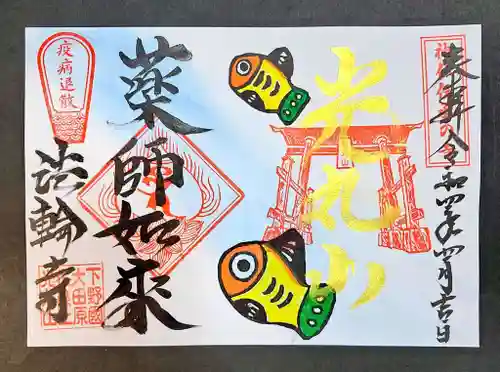 奉拝 令和四年四月吉日
光丸山
薬師如来
疫病退散
法輪寺
下野國
大田原